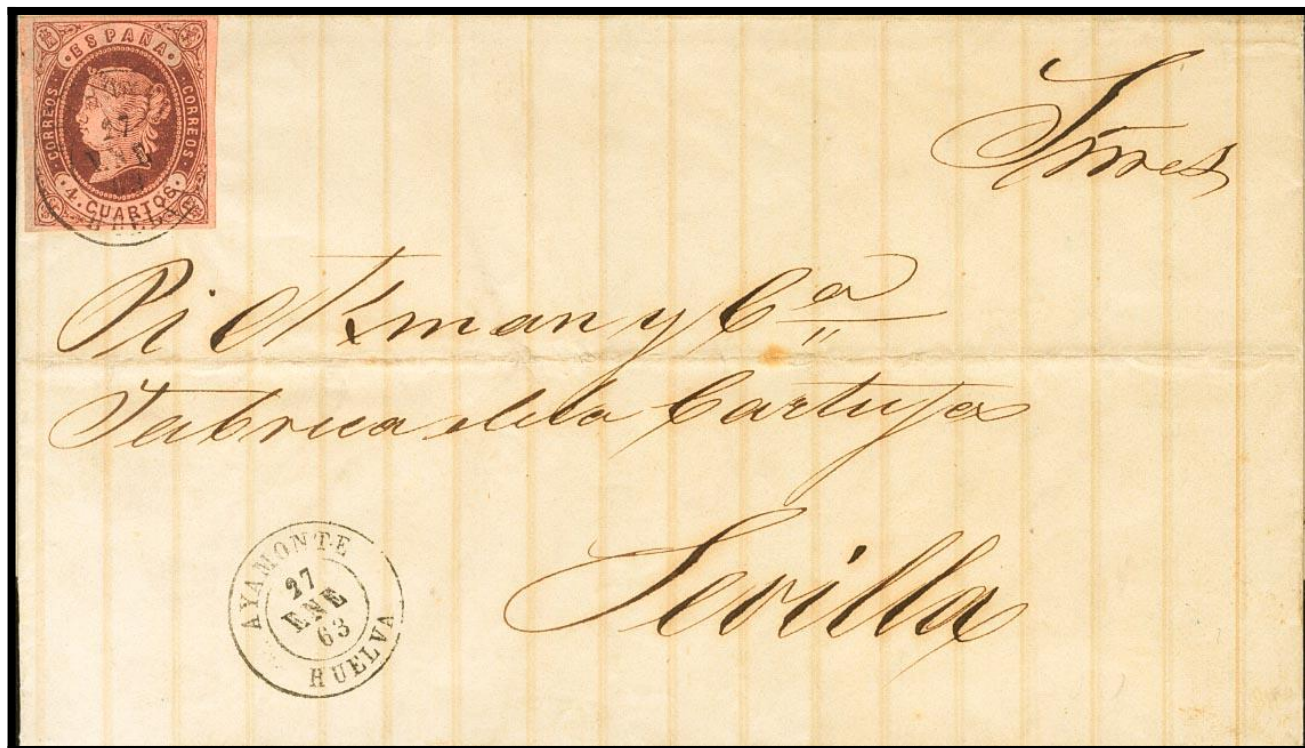 ·ESPAÑA·
CORREOS
CORREOS
4. CUARTOS.
27
ENE
HUELVA
Sñres
Pickman y Cª
Fabrica de la Cartuja
Sevilla
AYAMONTE
27
ENE
63
HUELVA